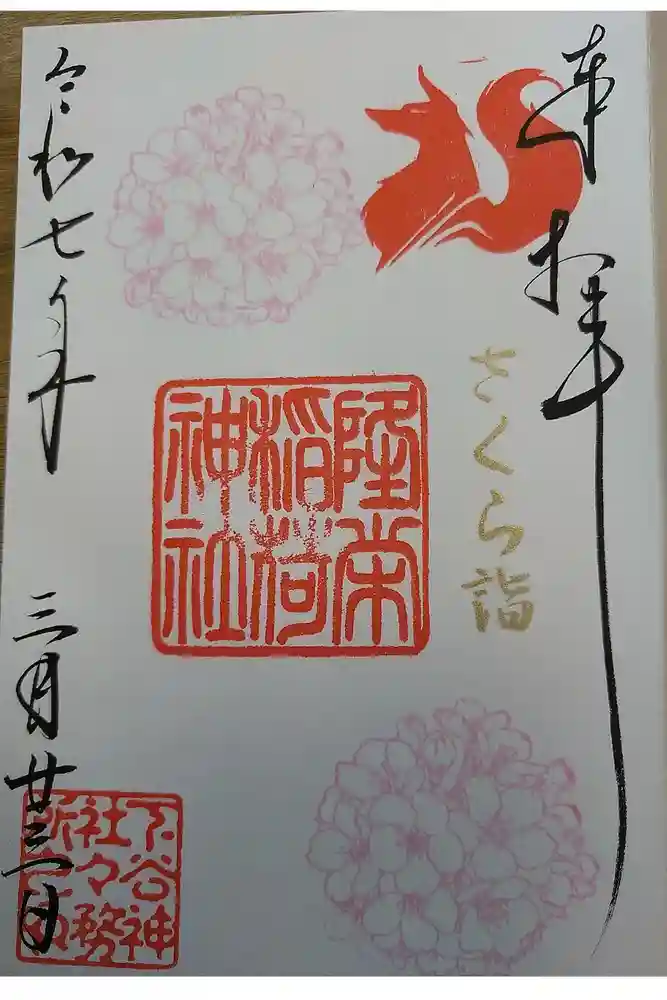 奉拝
さくら詣
隆栄
稲荷
神社
令和七年 三月廿三日
下谷神
社々務
所之印